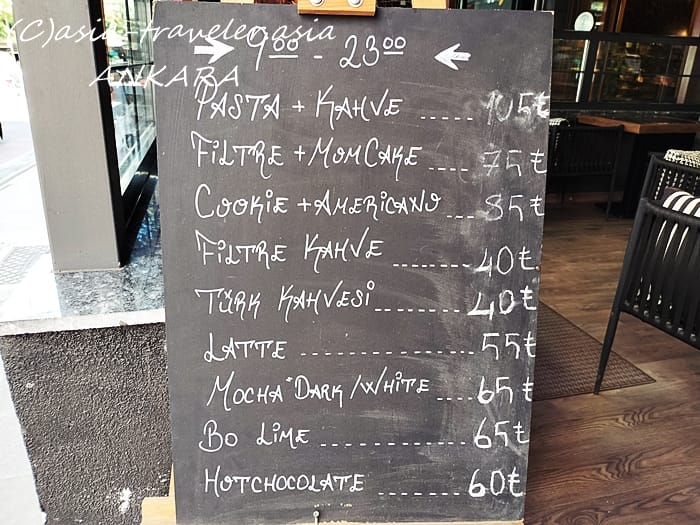 (C)asia-travelerasia
ANKARA
9⁰⁰ - 23⁰⁰
PASTA + KAHVE ...... 105₺
FİLTRE + MOMCAKE .... 75₺
COOKİE + AMERİCANO ... 85₺
FİLTRE KAHVE -------- 40₺
TÜRK KAHVESİ --------- 40₺
LATTE ---------------- 55₺
MOCHA DARK/WHİTE ---- 65₺
BO LİME -------------- 65₺
HOTCHOCOLATE -------- 60₺